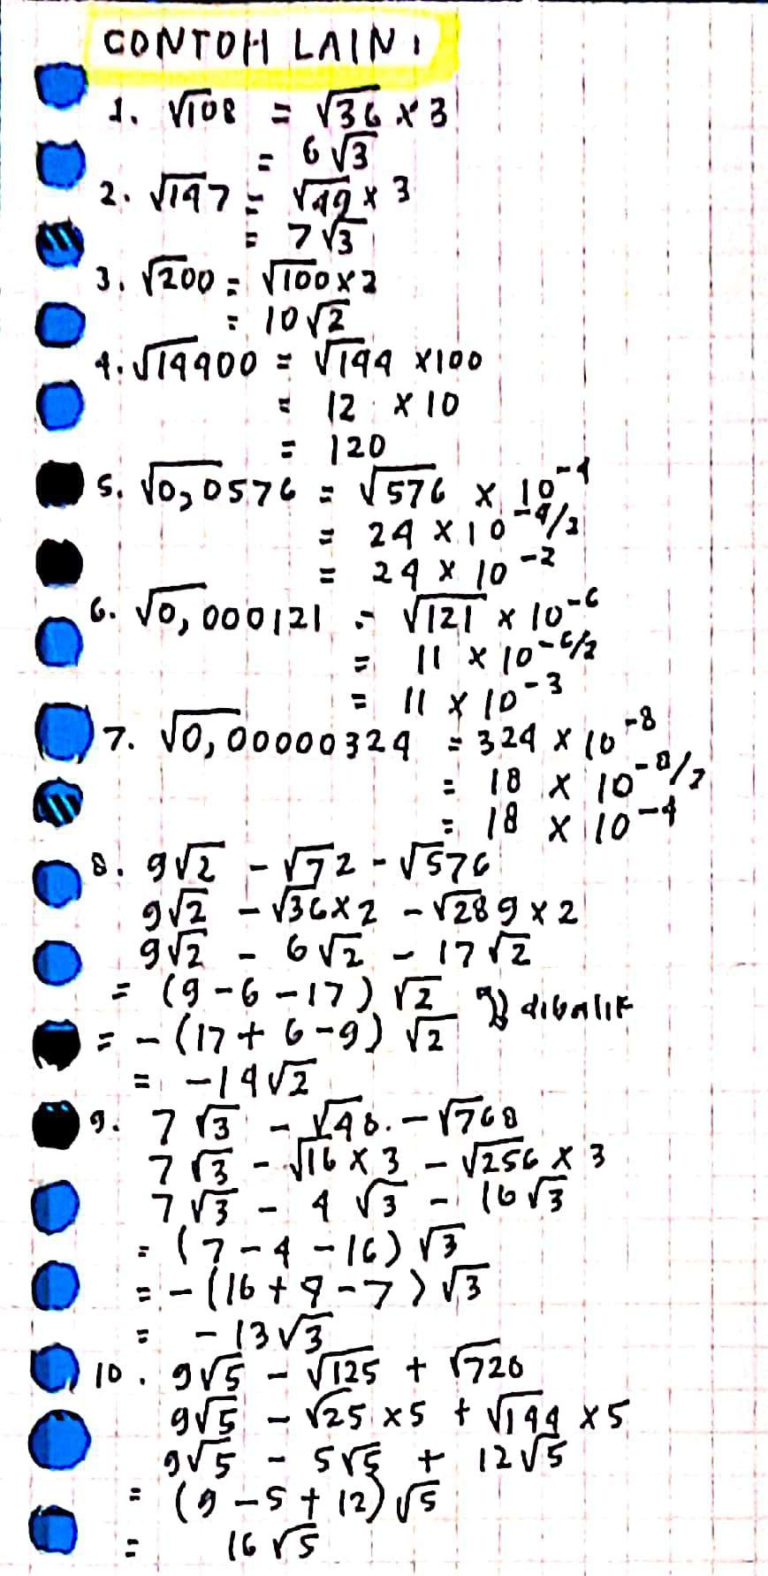 CONTOH LAIN :
1. √108 = √36 × 3
= 6√3
2. √147 = √49 × 3
= 7√3
3. √200 = √100 × 2
= 10√2
4. √14400 = √144 × 100
= 12 × 10
= 120
5. √0,0576 = √576 × 10⁻⁴
= 24 × 10⁻⁴/²
= 24 × 10⁻²
6. √0,000121 = √121 × 10⁻⁶
= 11 × 10⁻⁶/²
= 11 × 10⁻³
7. √0,00000324 = 324 × 10⁻⁸
= 18 × 10⁻⁸/²
= 18 × 10⁻⁴
8. 9√2 - √72 - √576
9√2 - √36×2 - √289 × 2
9√2 - 6√2 - 17√2
= (9 - 6 - 17) √2 dibalik
= - (17 + 6 - 9) √2
= -14√2
9. 7√3 - √48 - √768
7√3 - √16 × 3 - √256 × 3
7√3 - 4√3 - 16√3
= (7 - 4 - 16) √3
= - (16 + 4 - 7) √3
= -13√3
10. 9√5 - √125 + √720
9√5 - √25 × 5 + √144 × 5
9√5 - 5√5 + 12√5
= (9 - 5 + 12) √5
= 16√5